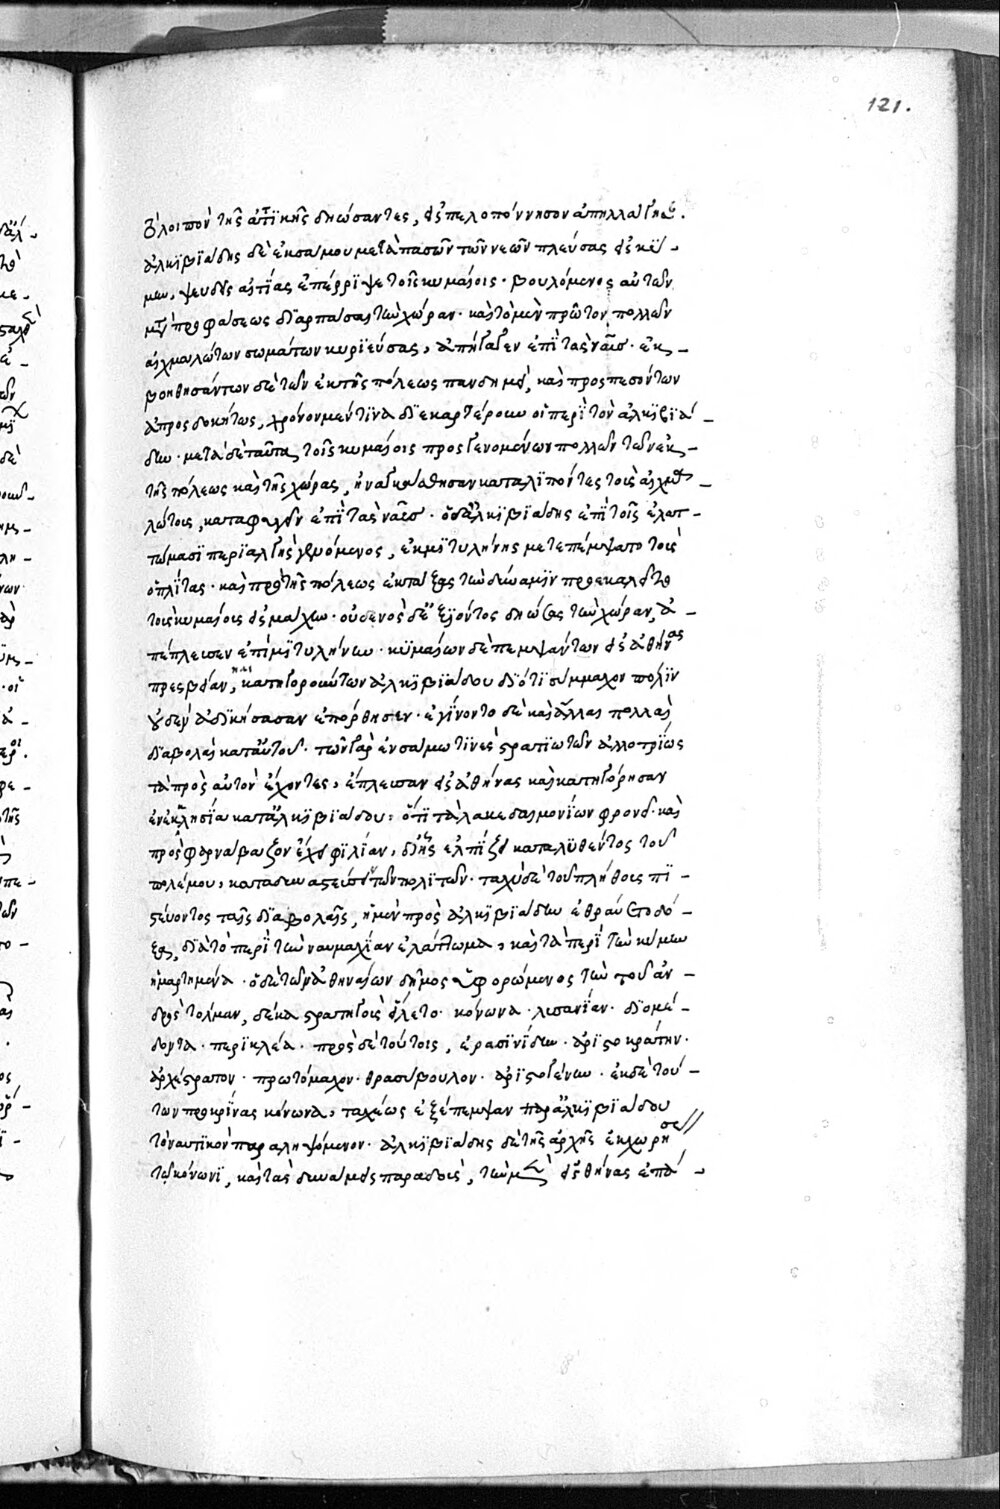 121.
τὸ λοιπὸν τῆς ἀττϊκῆς δηώσαντες, εἰς πελοπόννησον ἀπηλλάγησαν.
ἀλκϊβϊάδης δὲ ἐκ σάμου μετὰ πασῶν τῶν νεῶν πλεύσας εἰς κύ-
μην, ψευδεῖς αἰτίας ἐπέρρϊψε τοῖς κυμαίοις· βουλόμενος αὐτῶν
μετὰ προφάσεως δϊαρπάσαι τὴν χώραν· καὶ τὸ μὲν πρῶτον πολλῶν
αἰχμαλώτων σωμάτων κυρϊεύσας, ἀπήγαγεν ἐπὶ τὰς ναῦς· ἐκ-
βοηθησάντων δὲ τῶν ἐκ τῆς πόλεως πανδημεὶ, καὶ προσπεσόντων
ἀπροσδοκήτως, χρόνον μέν τϊνα δϊεκαρτέρουν οἱ περὶ τὸν ἀλκϊβϊά-
δην· μετὰ δὲ ταῦτα τοῖς κυμαίοις προσγενομένων πολλῶν τῶν ἐκ
τῆς πόλεως καὶ τῆς χώρας, ἠναγκάσθησαν καταλϊπόντες τοὺς αἰχμα-
λώτους, καταφυγεῖν ἐπὶ τὰς ναῦς· ὁ δὲ ἀλκϊβϊάδης ἐπὶ τοῖς ἐλατ-
τώμασϊ περϊαλγὴς γενόμενος, ἐκ μϊτυλήνης μετεπέμψατο τοὺς
ὁπλίτας· καὶ πρὸ τῆς πόλεως ἐκτάξας τὴν δύναμϊν προεκαλεῖτο
τοὺς κυμαίους εἰς μάχην· οὐδενὸς δὲ ἐξϊόντος δηώσας τὴν χώραν, ἀ-
πέπλευσεν ἐπὶ μϊτυλήνην· κυμαίων δὲ πεμψάντων εἰς ἀθήνας
πρεσβείαν, καὶ κατηγορούντων ἀλκϊβϊάδου δϊότϊ σύμμαχον πόλϊν
οὐδὲν ἀδϊκήσασαν ἐπόρθησεν· ἐγίνοντο δὲ καὶ ἄλλαι πολλαὶ
δϊαβολαὶ κατ' αὐτοῦ· τῶν γὰρ ἐν σάμω τϊνὲς στρατϊωτῶν ἀλλοτρίως
τὰ πρὸς αὐτὸν ἔχοντες, ἔπλευσαν εἰς ἀθήνας καὶ κατηγόρησαν
ἐν ἐκκλησία κατὰ ἀλκϊβϊάδου· ὅτϊ τὰ λακεδαιμονίων φρονεῖ· καὶ
πρὸς φαρνάβαζον ἔχει φϊλίαν, δι' ἧς ἐλπίζει καταλυθέντος τοῦ
πολέμου, καταδυναστεύσειν τῶν πολϊτῶν· ταχὺ δὲ τοῦ πλήθους πϊ-
στεύοντος ταῖς δϊαβολαῖς, ἡ μὲν πρὸς ἀλκϊβϊάδην ἐθραύετο δό-
ξα, δϊὰ τὸ περὶ τὴν ναυμαχίαν ἐλάττωμα, καὶ τὰ περὶ τὴν κύμην
ἡμαρτημένα· ὁ δὲ τῶν ἀθηναίων δῆμος ὑφορώμενος τὴν τοῦ ἀν-
δρὸς τόλμαν, δέκα στρατηγοὺς εἵλετο· κόνωνα· λυσανίαν· δϊομέ-
δοντα· περϊκλέα· πρὸς δὲ τούτοις, ἐρασϊνίδην· ἀρϊστοκράτην·
ἀρχέστρατον· πρωτόμαχον· θρασύβουλον· ἀρϊστογένην· ἐκ δὲ τού-
των προκρίνας κόνωνα, ταχέως ἐξέπεμψαν παρὰ ἀλκϊβϊάδου
τὸ ναυτϊκὸν παραληψόμενον· ἀλκϊβϊάδης δὲ τῆς ἀρχῆς ἐκχωρήσας
τῷ κόνωνϊ, καὶ τὰς δυνάμεις παραδοὺς, τὴν μὲν εἰς ἀθήνας ἐπά-